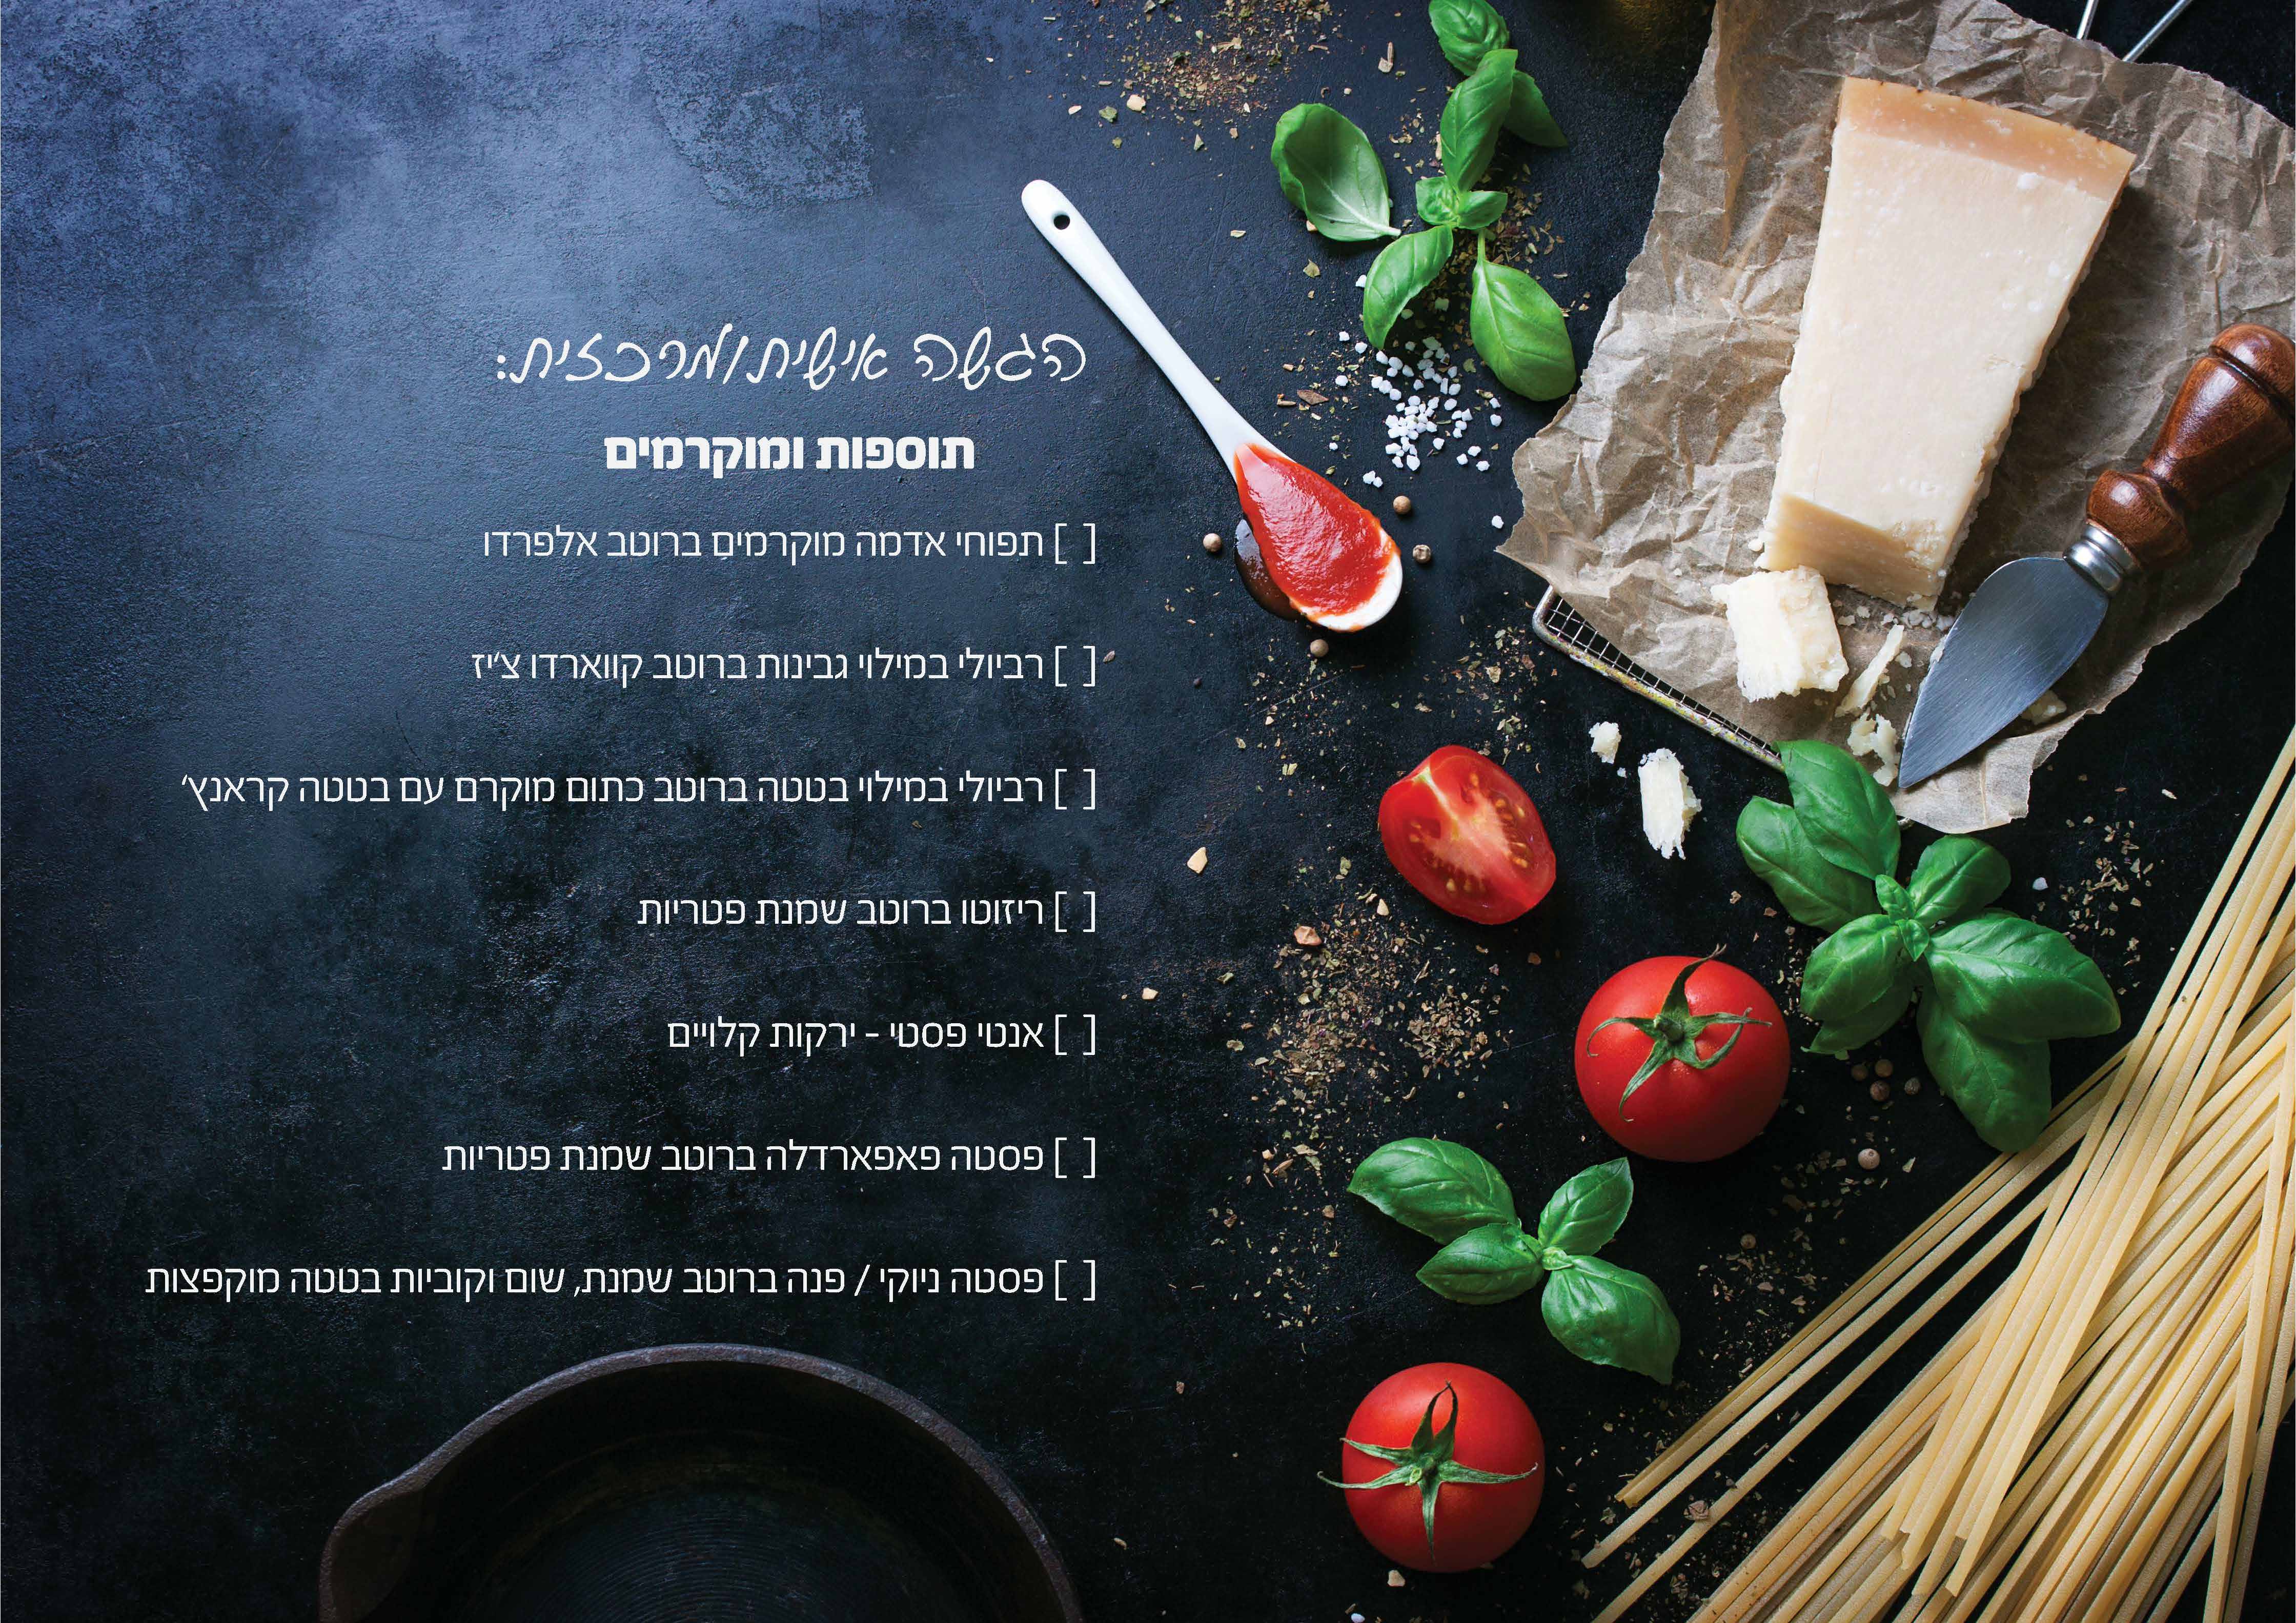 הגשה אישית/מרכזית:
תוספות ומוקרמים
[ ] תפוחי אדמה מוקרמים ברוטב אלפרדו
[ ] רביולי במילוי גבינות ברוטב קווארדו צ'יז
[ ] רביולי במילוי בטטה ברוטב כתום מוקרם עם בטטה קראנץ'
[ ] ריזוטו ברוטב שמנת פטריות
[ ] אנטי פסטי - ירקות קלויים
[ ] פסטה פאפארדלה ברוטב שמנת פטריות
[ ] פסטה ניוקי / פנה ברוטב שמנת, שום וקוביות בטטה מוקפצות